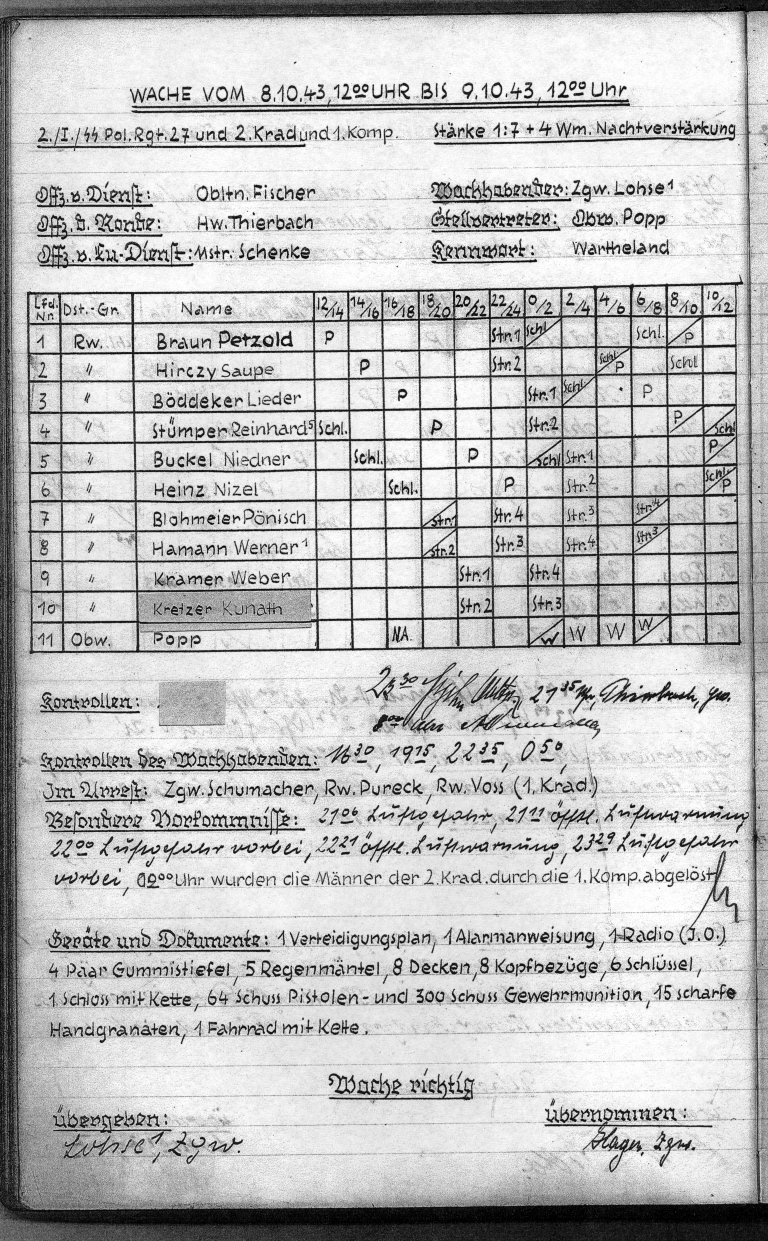 WACHE VOM 8.10.43, 12⁰⁰ UHR BIS 9.10.43, 12⁰⁰ Uhr
2./I./SS Pol. Rgt. 27 und 2. Krad und 1. Komp. Stärke 1:7 + 4 Wm. Nachtverstärkung
Offz. v. Dienst: Obltn. Fischer Wachhabender: Zgw. Lohse¹
Offz. d. Ronde: Hw. Thierbach Stellvertreter: Obw. Popp
Offz. v. Lu-Dienst: Mstr. Schenke Kennwort: Wartheland
Lfd. Nr. Dst.-Gr. Name 12/14 14/16 16/18 18/20 20/22 22/24 0/2 2/4 4/6 6/8 8/10 10/12
1 Rw. Braun Petzold P Str.1 Schl. Schl. P
2 " Hirczy Saupe P Str.2 Schl. P Schl
3 " Böddeker Lieder P Str.1 Schl. P
4 " Stümper Reinhard⁵ Schl. P Str.2 P Schl
5 " Buckel Niedner Schl. P Schl Str.1 P
6 " Heinz Nizel Schl. P Str.2 Schl. P
7 " Blohmeier Pönisch Str.1 Str.4 Str.3 Str.4
8 " Hamann Werner¹ Str.2 Str.3 Str.4 Str.3
9 " Kramer Weber Str.1 Str.4
10 " Kretzer Kunath Str.2 Str.3
11 Obw. Popp NA W W W W
Kontrollen: 23³⁰ 21³⁵ Uhr, Thierbach,
8⁰⁰
Kontrollen des Wachhabenden: 16³⁰, 19¹⁵, 22³⁵, 0⁵⁰,
Im Arrest: Zgw. Schumacher, Rw. Pureck, Rw. Voss (1. Krad.)
Besondere Vorkommnisse: 21⁰⁶ Luftgefahr, 21¹¹ öfftl. Luftwarnung
22⁰⁰ Luftgefahr vorbei, 22²¹ öfftl. Luftwarnung, 23²⁹ Luftgefahr
vorbei, 00⁰⁰ Uhr wurden die Männer der 2. Krad. durch die 1. Komp. abgelöst
Geräte und Dokumente: 1 Verteidigungsplan, 1 Alarmanweisung, 1 Radio (J.O.)
4 Paar Gummistiefel, 5 Regenmäntel, 8 Decken, 8 Kopfbezüge, 6 Schlüssel,
1 Schloss mit Kette, 64 Schuss Pistolen- und 300 Schuss Gewehrmunition, 15 scharfe
Handgranaten, 1 Fahrrad mit Kette.
Wache richtig
übergeben: übernommen:
Lohse¹, Zgw. Zgw.